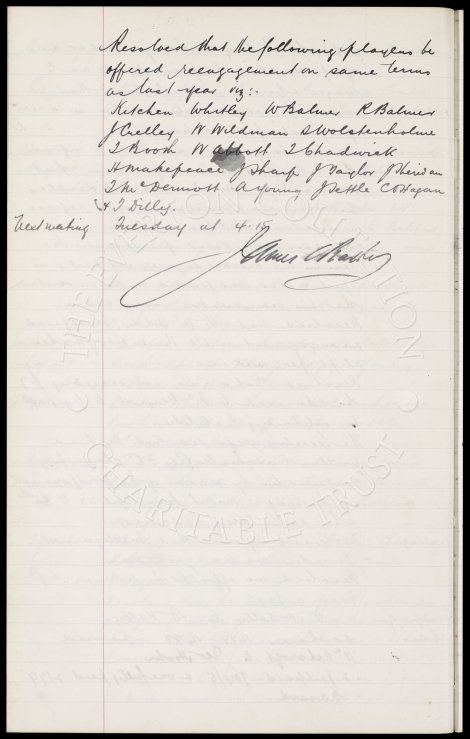 Resolved that the following players be
offered reengagement on same terms
as last year viz:-
Kitchen Whitley W Balmer R Balmer
J Crelley W Wildman S Wolstenholme
T Booth W Abbott T Chadwick
H Makepeace J Sharp J Taylor J Sheridan
T McDermott A Young J Settle C O Hagan
& T Dilly.
Next meeting Tuesday at 4.15
James Baxter
THE EVERTON COLLECTION
CHARITABLE TRUST